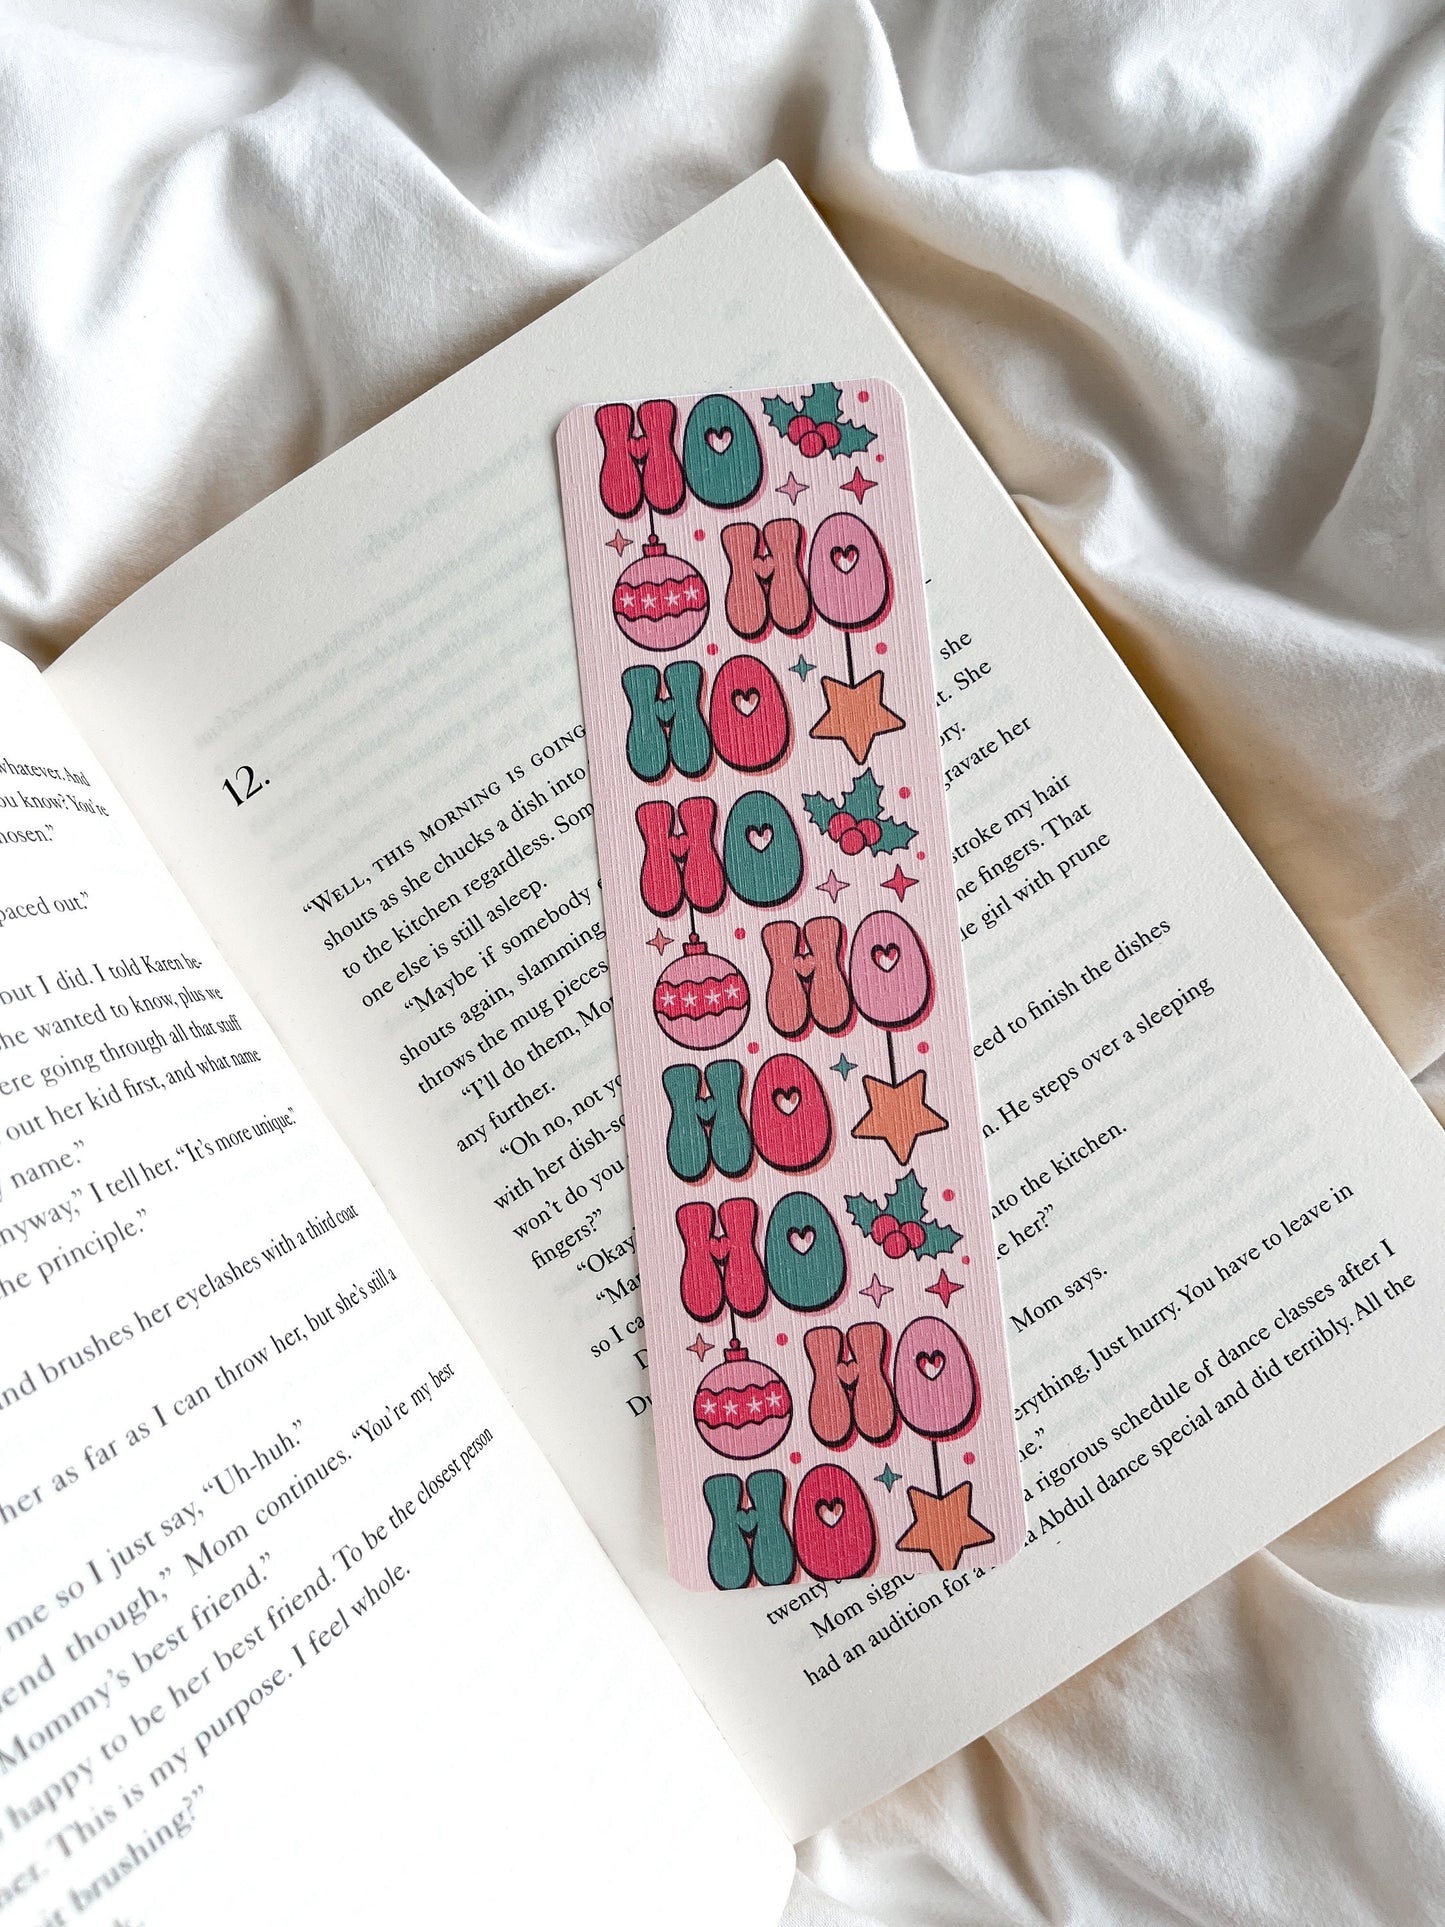 whatever. And
ou know? You're
hosen."
paced out."
but I did. I told Karen be-
he wanted to know, plus we
ere going through all that stuff
out her kid first, and what name
name."
anyway," I tell her. "It's more unique."
he principle."
and brushes her eyelashes with a third coat
her as far as I can throw her, but she's still a
me so I just say, "Uh-huh."
end though," Mom continues. "You're my best
Mommy's best friend."
happy to be her best friend. To be the closest person
her. This is my purpose. I feel whole.
it brushing?"
12.
"WELL, THIS MORNING IS GOING
shouts as she chucks a dish into
to the kitchen regardless. Som
one else is still asleep.
"Maybe if somebody
shouts again, slamming
throws the mug pieces
"I'll do them, Mo
any further.
"Oh no, not yo
with her dish-so
won't do you
fingers?"
"Okay
"Mar
so I ca
D
Du
she
it. She
ory.
gravate her
stroke my hair
he fingers. That
le girl with prune
eed to finish the dishes
n. He steps over a sleeping
nto the kitchen.
e her?"
Mom says.
erything. Just hurry. You have to leave in
ne."
a rigorous schedule of dance classes after I
a Abdul dance special and did terribly. All the
twenty
Mom signe
had an audition for a
HO
HO
HO
HO
HO
HO
HO
HO
HO